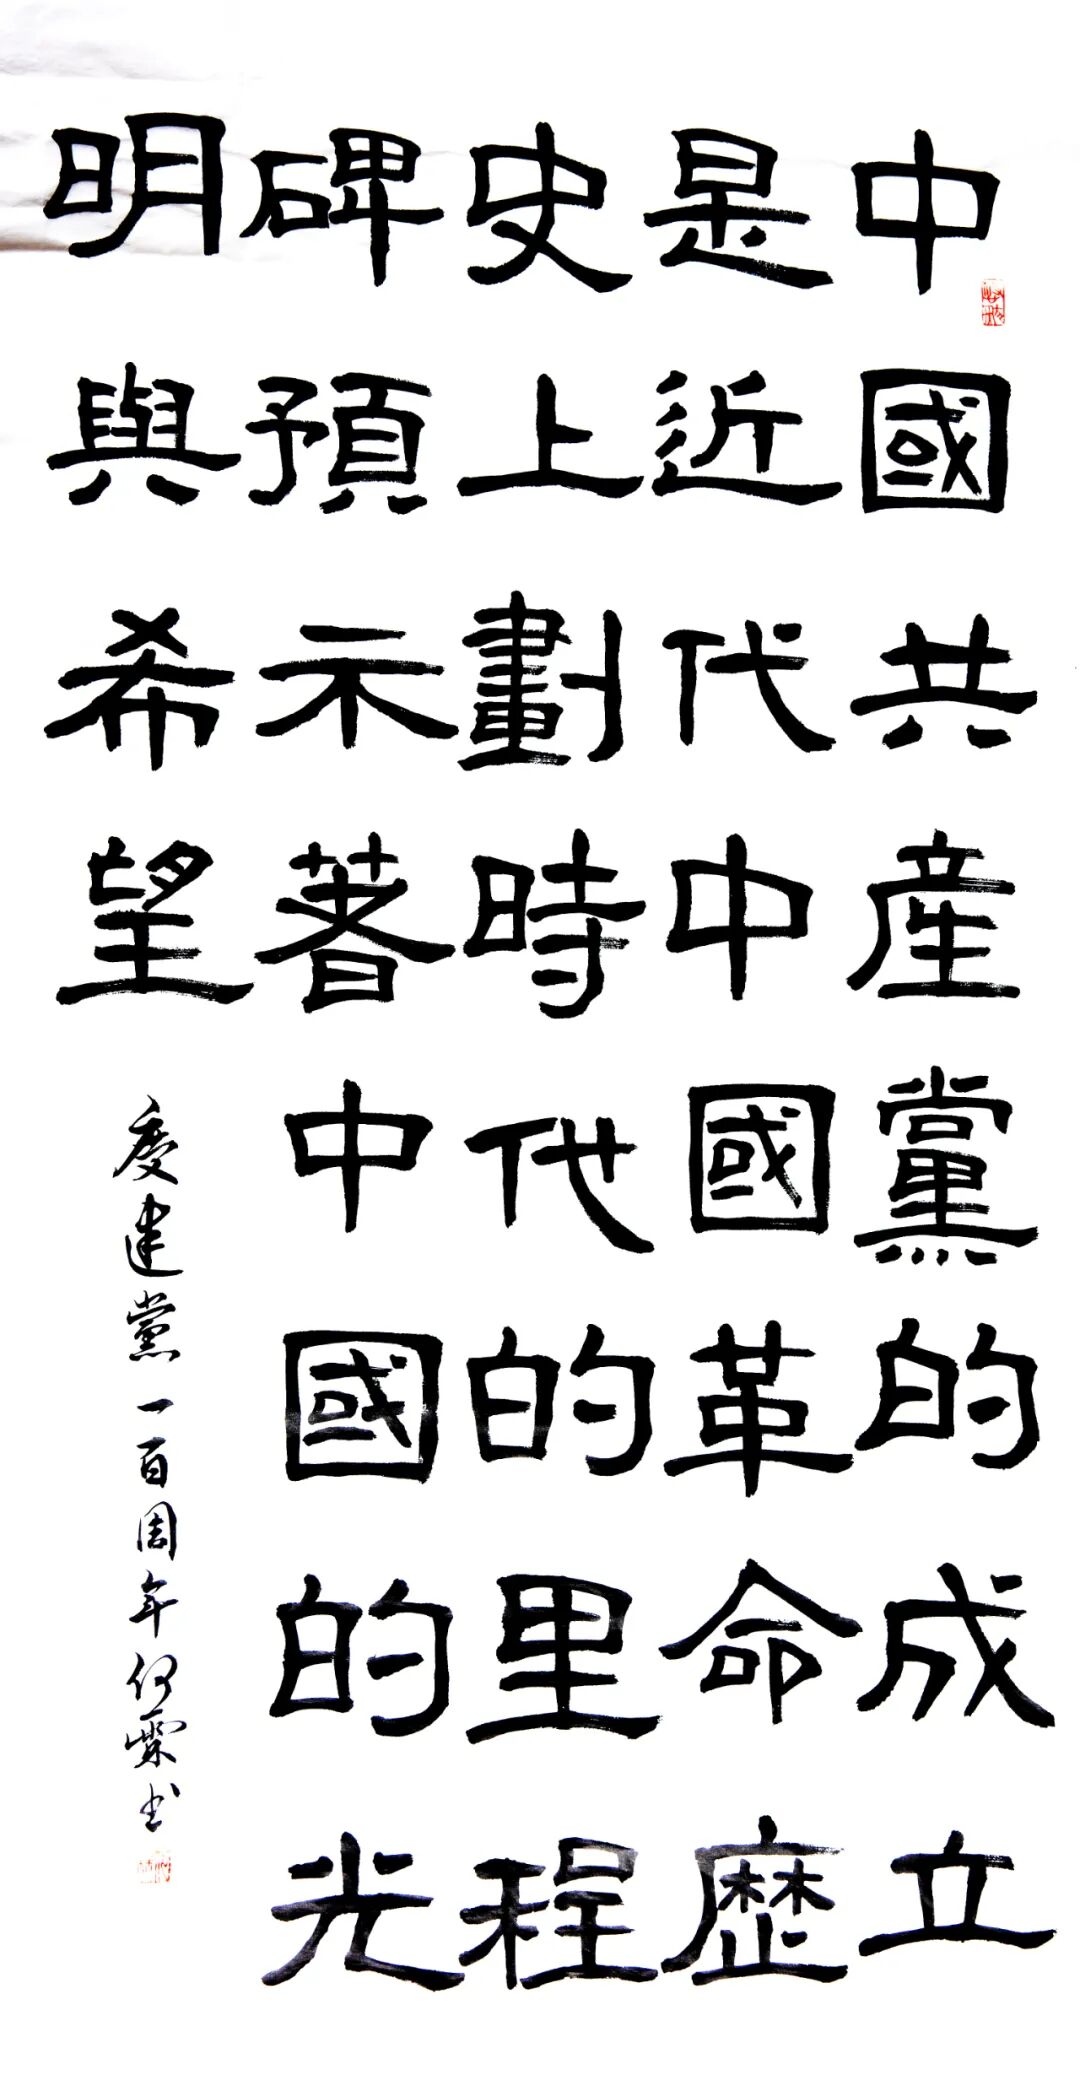 中國共産黨的成立
是近代中國革命歷
史上劃時代的里程
碑預示著中國的光
明與希望
慶建黨一百周年何霖书